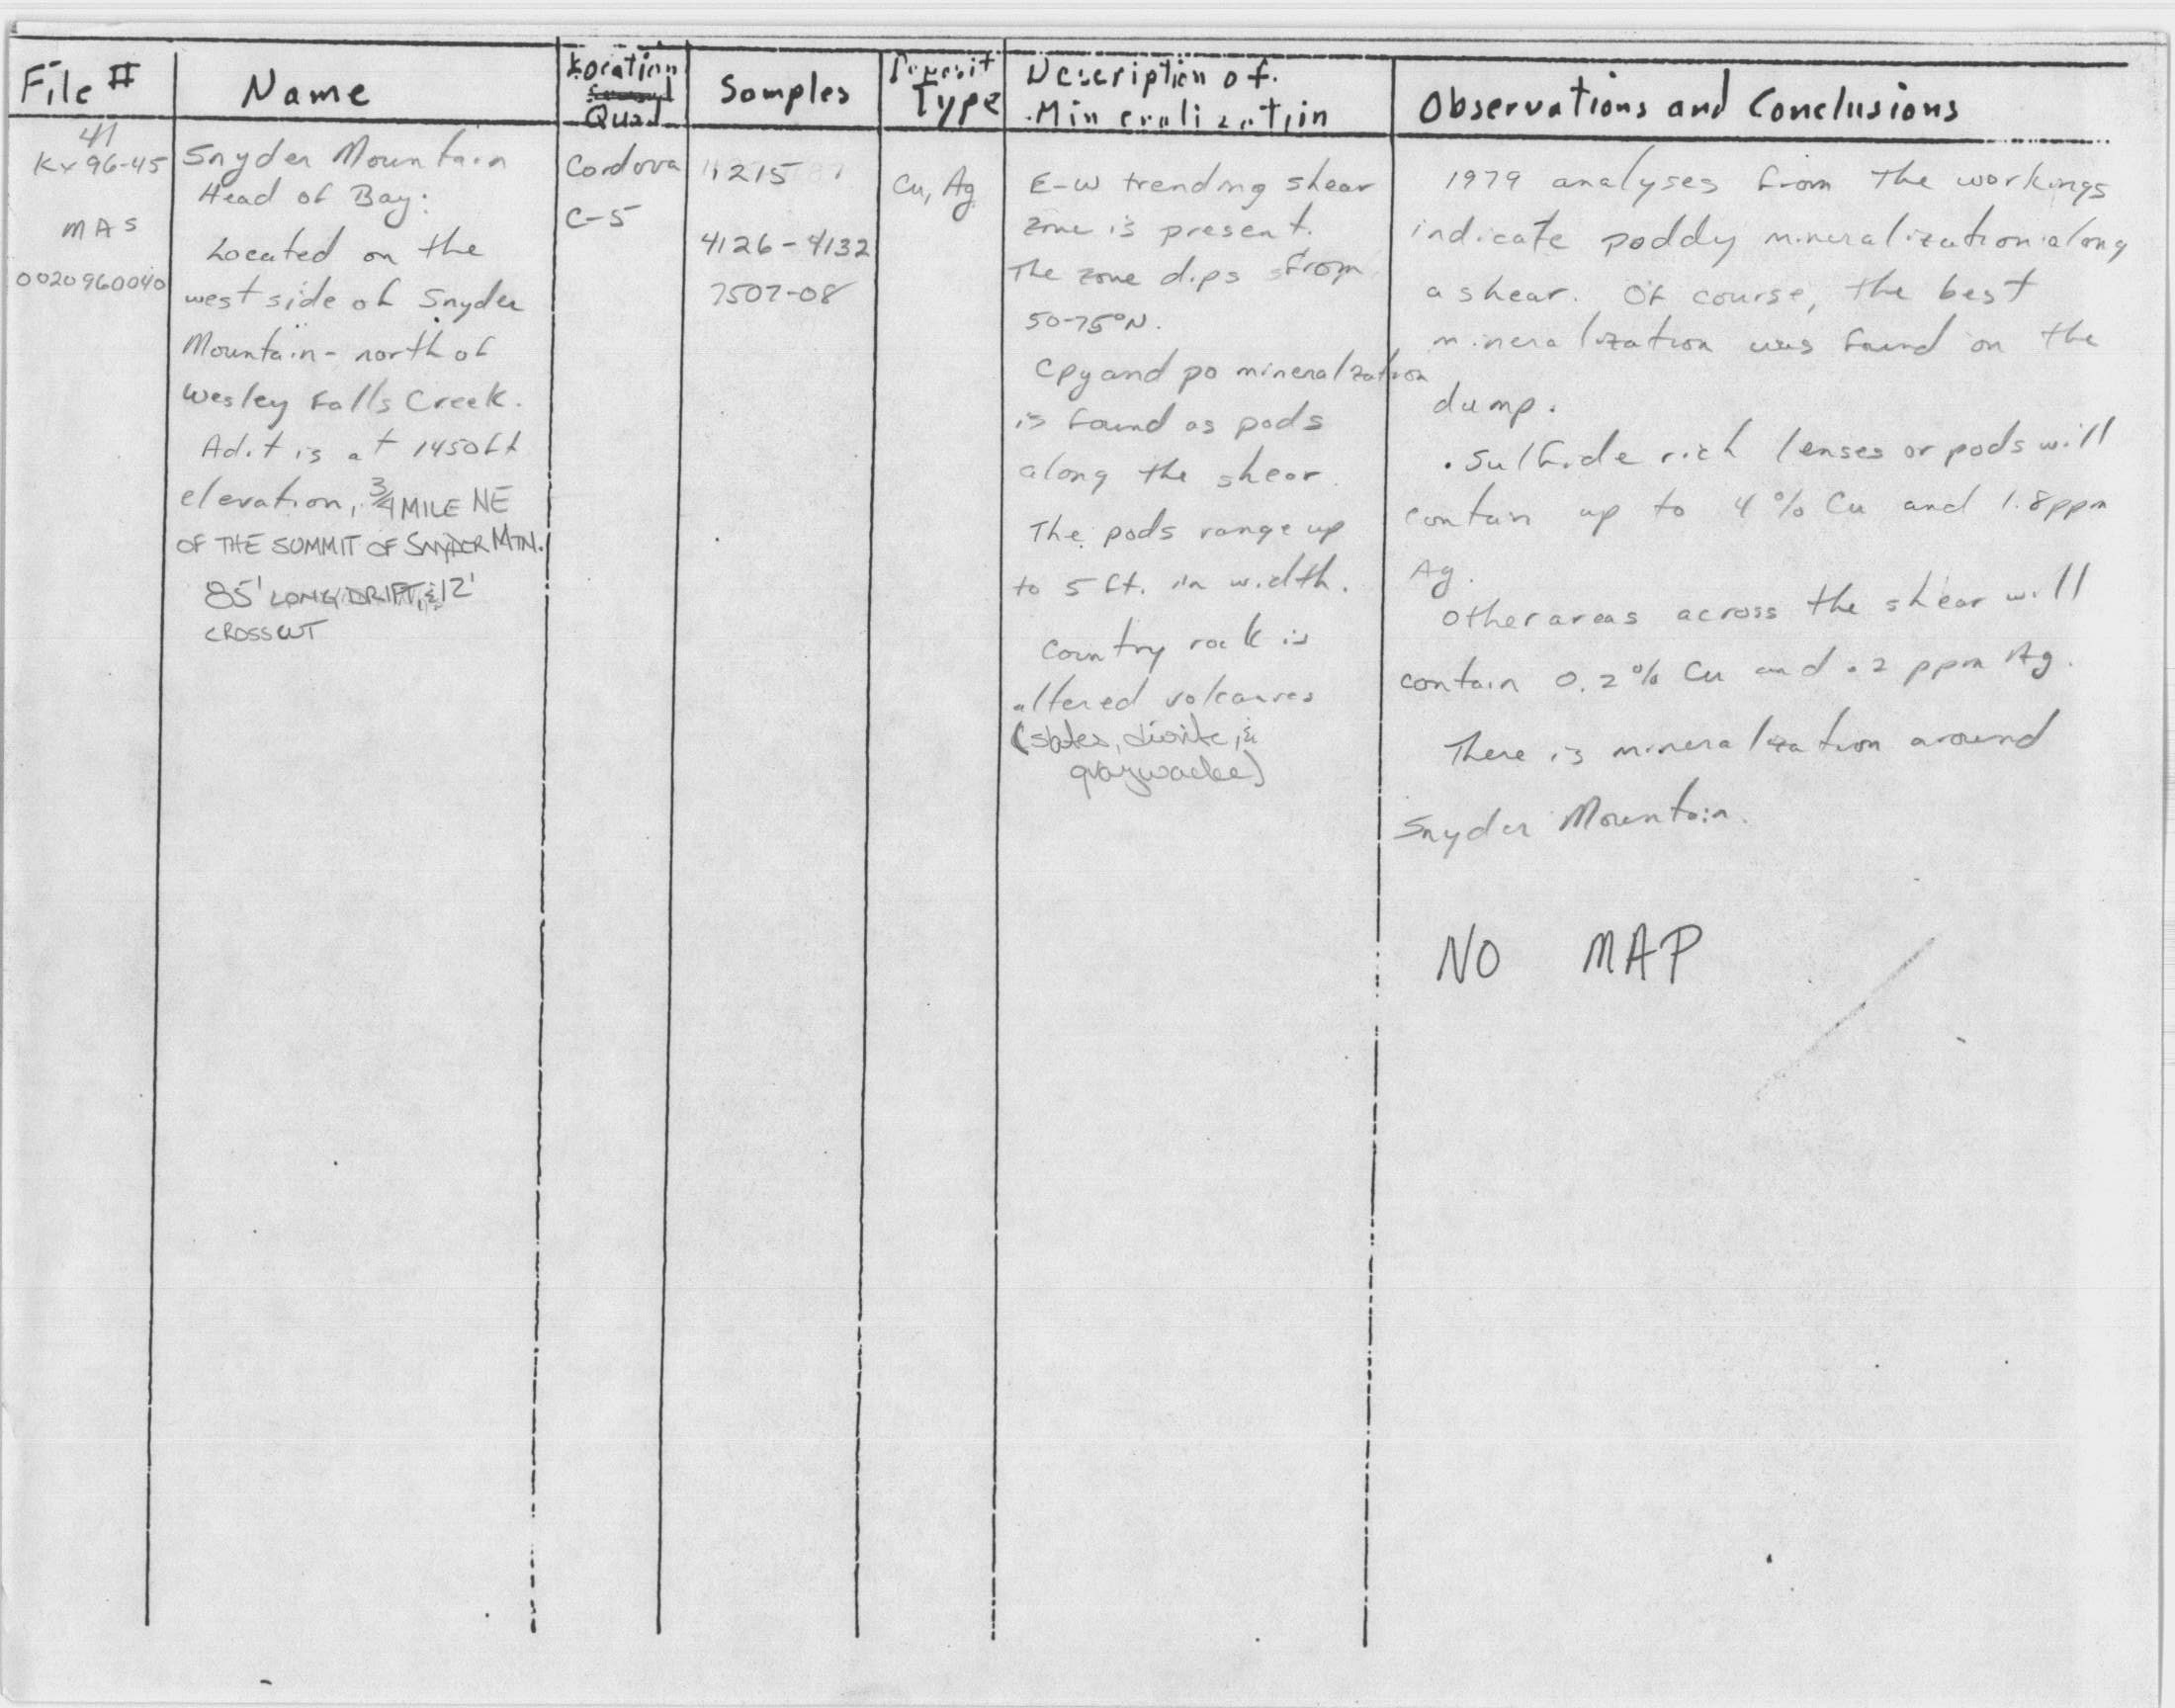 File #
Name
Location
Quad
Samples
Deposit
Type
Description of
Mineralization
Observations and Conclusions
41
Kx 96-45
MAS
0020960040
Snyder Mountain
Head of Bay:
Located on the
west side of Snyder
Mountain - north of
Wesley Falls Creek.
Adit is at 1450 ft
elevation, 3/4 MILE NE
OF THE SUMMIT OF SNYDER MTN.
85' LONG DRIFT, & 12'
CROSSCUT
Cordova
C-5
11215
4126-4132
7507-08
Cu, Ag
E-W trending shear
zone is present.
The zone dips from
50-75°N.
Cpy and po mineralization
is found as pods
along the shear.
The pods range up
to 5 ft. in width.
Country rock is
altered volcanics
(slates, diorite, &
graywacke)
1979 analyses from the workings
indicate poddy mineralization along
a shear. Of course, the best
mineralization was found on the
dump.
. Sulfide rich lenses or pods will
contain up to 4% Cu and 1.8ppm
Ag.
Other areas across the shear will
contain 0.2% Cu and .2 ppm Ag.
There is mineralization around
Snyder Mountain.
NO MAP